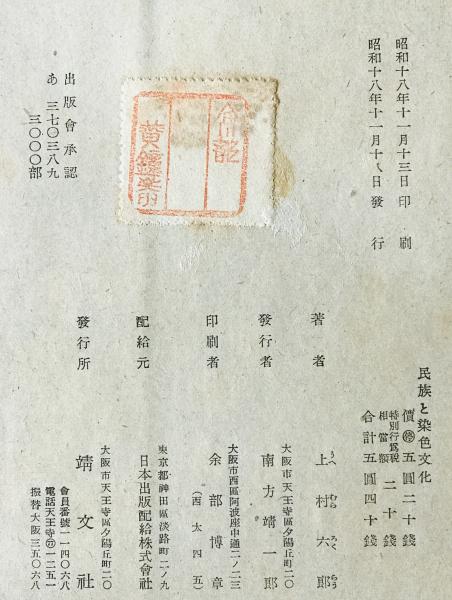 昭和十八年十一月十三日印刷
昭和十八年十一月十八日發行
出版會承認
あ 三七〇三八九
三〇〇〇部
民族と染色文化
價 五圓二十錢
特別行爲税
相當額 二十錢
合計五圓四十錢
著者 上村六郎
うへ むら ろく らう
大阪市天王寺區夕陽丘町二〇
發行者 南方靖一郎
大阪市西區阿波座中通二ノ二三
印刷者 余部博章
(西大四五)
東京都神田區淡路町二ノ九
配給元 日本出版配給株式會社
大阪市天王寺區夕陽丘町二〇
發行所 靖文社
會員番號一一四〇六八
電話天王寺一二五一
振替大阪三五〇六八